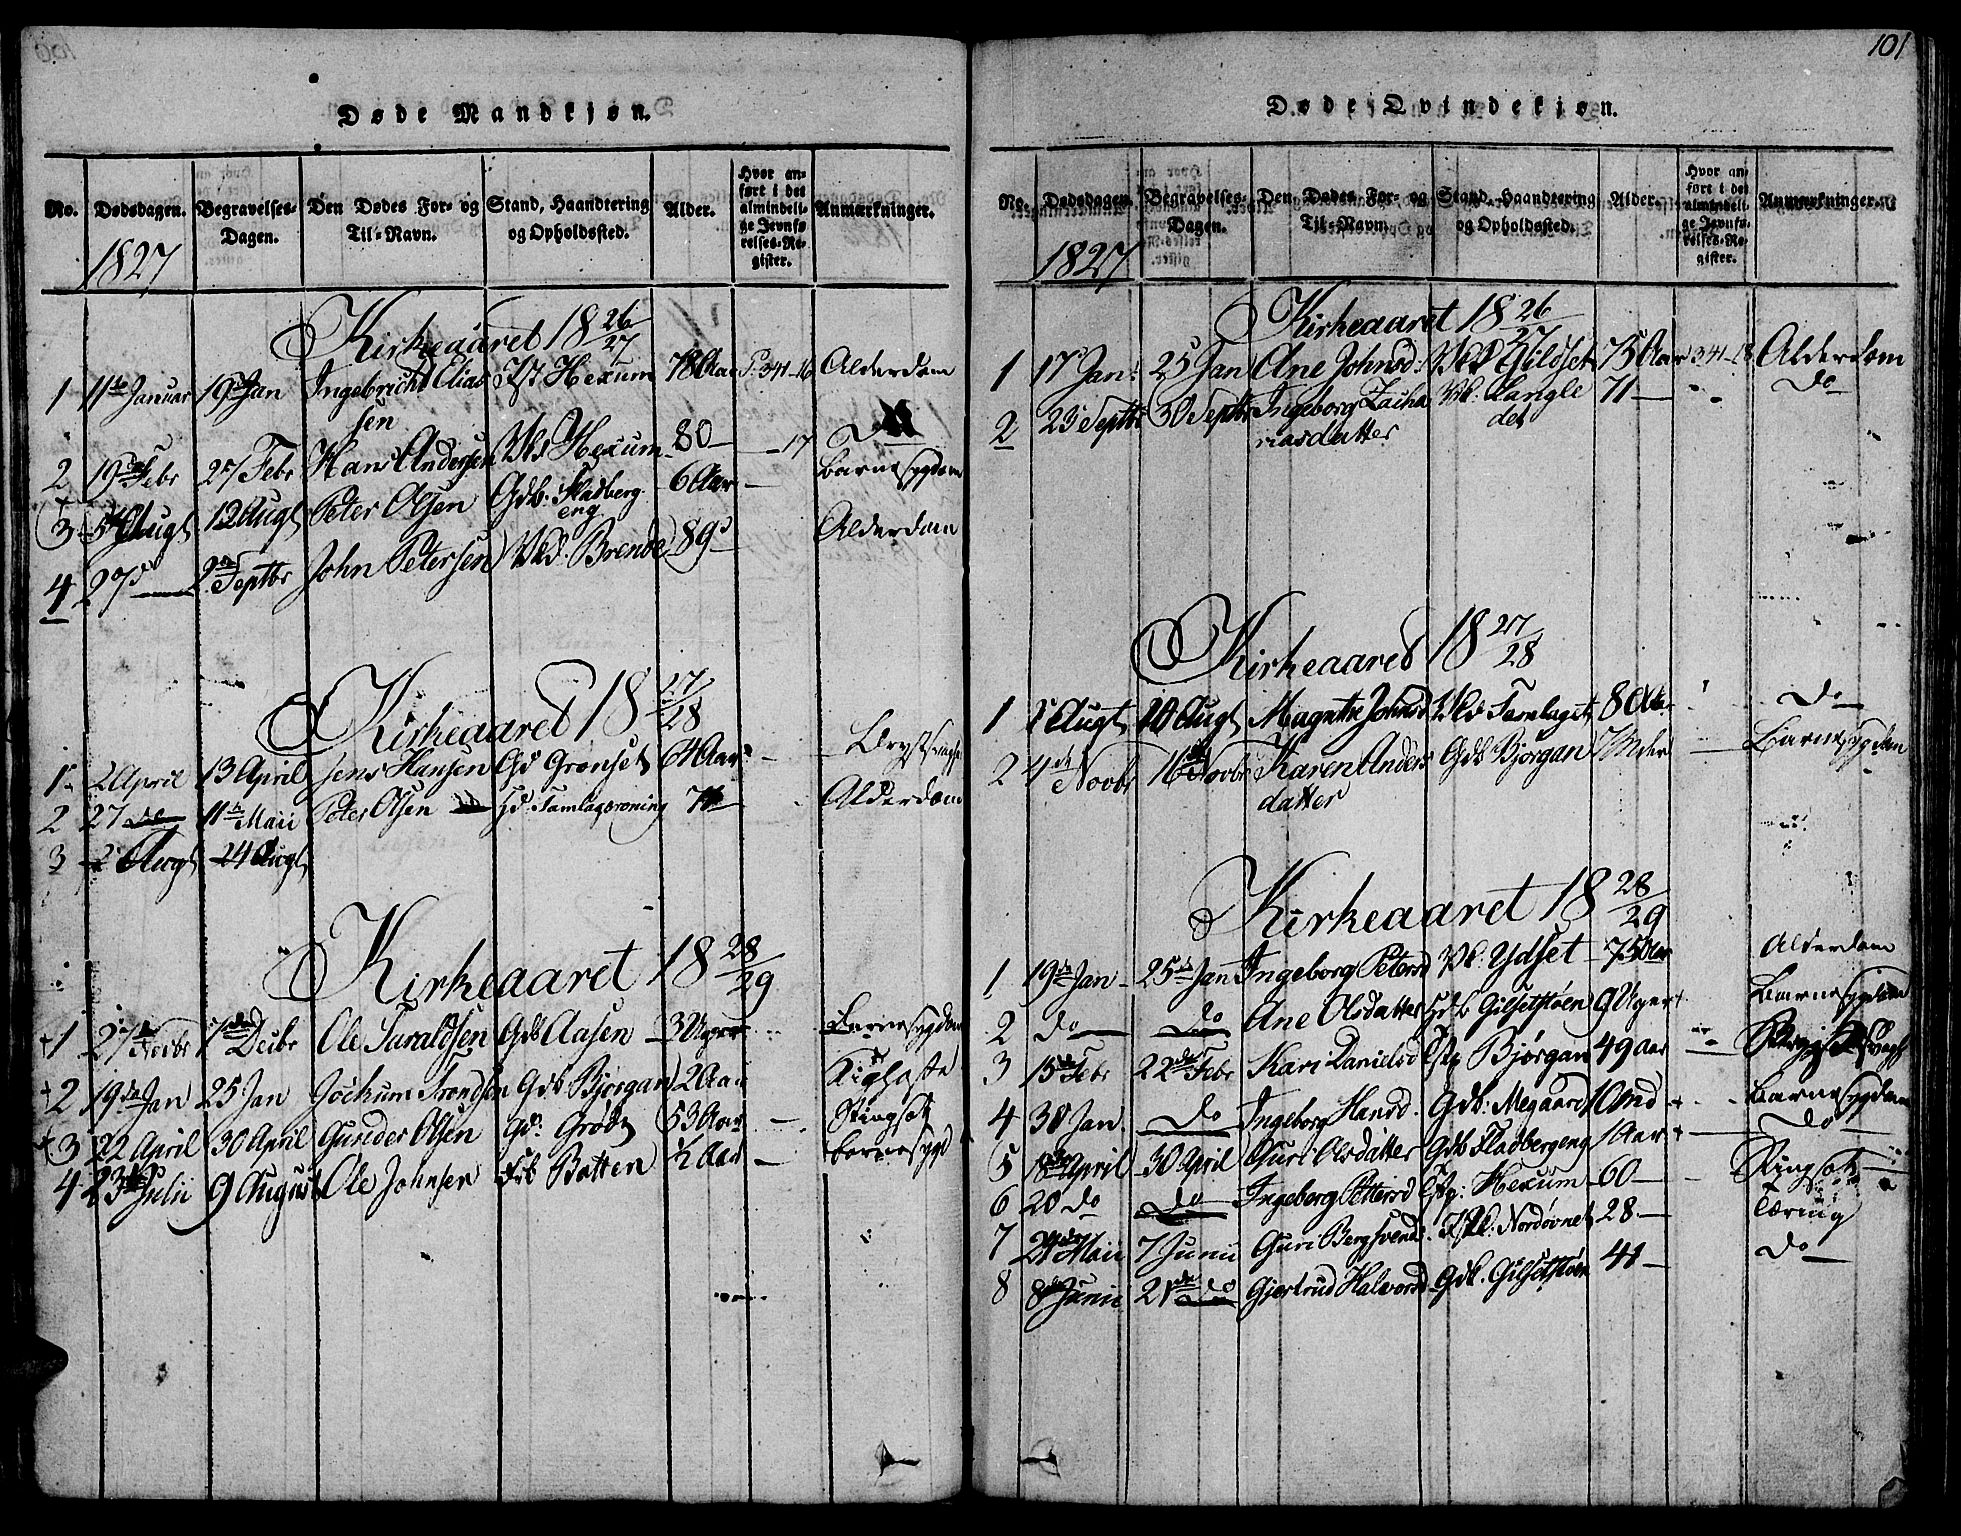 Døde Mandkjøn.
No. Dødsdagen. Begravelses-Dagen. Den Dødes For- og Til-Navn. Stand, Haandtering og Opholdssted. Alder. Hvor anført i det almindelige Jevnførelses-Register. Anmærkninger.
1827
Kirkeaaret 18 26/27
1 11te Januar 19de Jan Ingebricht Elias sen Hexum 78 Aar P. 341-16 Alderdom
2 19de Febr 25 Febr Hans Andersen Hexum 80 — 17
3 5te Augt 12 Augt Peter Olsen Gdb. Fladberg eng 6 Aar — Barnesygdom
4 27d — 2den Septbr John Petersen Brende 89 — Alderdom
Kirkeaaret 18 27/28
1 2 April 13 April Jens Hansen Gd Grønset 64 Aar Brystsvaghed
2 27 do 11te Maii Peter Olsen 74 Alderdom
3 2 Augt 24 Augt
Kirkeaaret 18 28/29
1 27de Novbr 7de Decbr Ole Taraldsen Gdb Aasen 3 Uger Barnesygdom
2 19de Jan 25 Jan Jochum Trondsen Gdb Bjørgan 2 Aar Kighoste
3 22 April 30 April Gunder Olsen Gd. 53 Aar —
4 23de Julii 9 August Ole Johnsen Batten ½ Aar — Barnesygd
101
Døde Qvindekjøn.
No. Dødsdagen. Begravelses-Dagen. Den Dødes For- og Til-Navn. Stand, Haandtering og Opholdssted. Alder. Hvor anført i det almindelige Jevnførelses-Register. Anmærkninger.
1827
Kirkeaaret 18 26/27
1 17 Jan: 25 Jan Ane Johnsd: Gildset 75 Aar 341-18 Alderdom
2 23 Septbr 30 Septbr Ingeborg Zacha riasdatter Langle det 71 — Do
Kirkeaaret 18 27/28
1 Augt 10 Augt Magnthe Johnsd Famlaget Do
2 4de Novbr 16de Novbr Karen Anders datter Gdb Bjørgan Barnesygdom
Kirkeaaret 18 28/29
1 19de Jan — 25de Jan Ingeborg Petersd Ydset 75 Aar Alderdom
2 Do Do Ane Olsdatter Gilsetstøen 9 Uger Barnesygdom
3 15de Febr 22de Febr Kari Danielsd Bjørgan 49 Aar
4 30 Jan. Do Ingeborg Hansd. Gdb: Megaard Barnesygdom
5 18de April 30 April Guri Olsdatter Gdb Fladbergeng 1 Aar Do
6 20 do Do Ingeborg Pettersd Hexum 60 —
7 24de Maii 7 Junii Guri Bergsvend. Nordøvnet 28 — Tæring
8 8de Junii 21de Do Gjertrud Halvorsd Gdb. Gilsetstøen 41 — Do